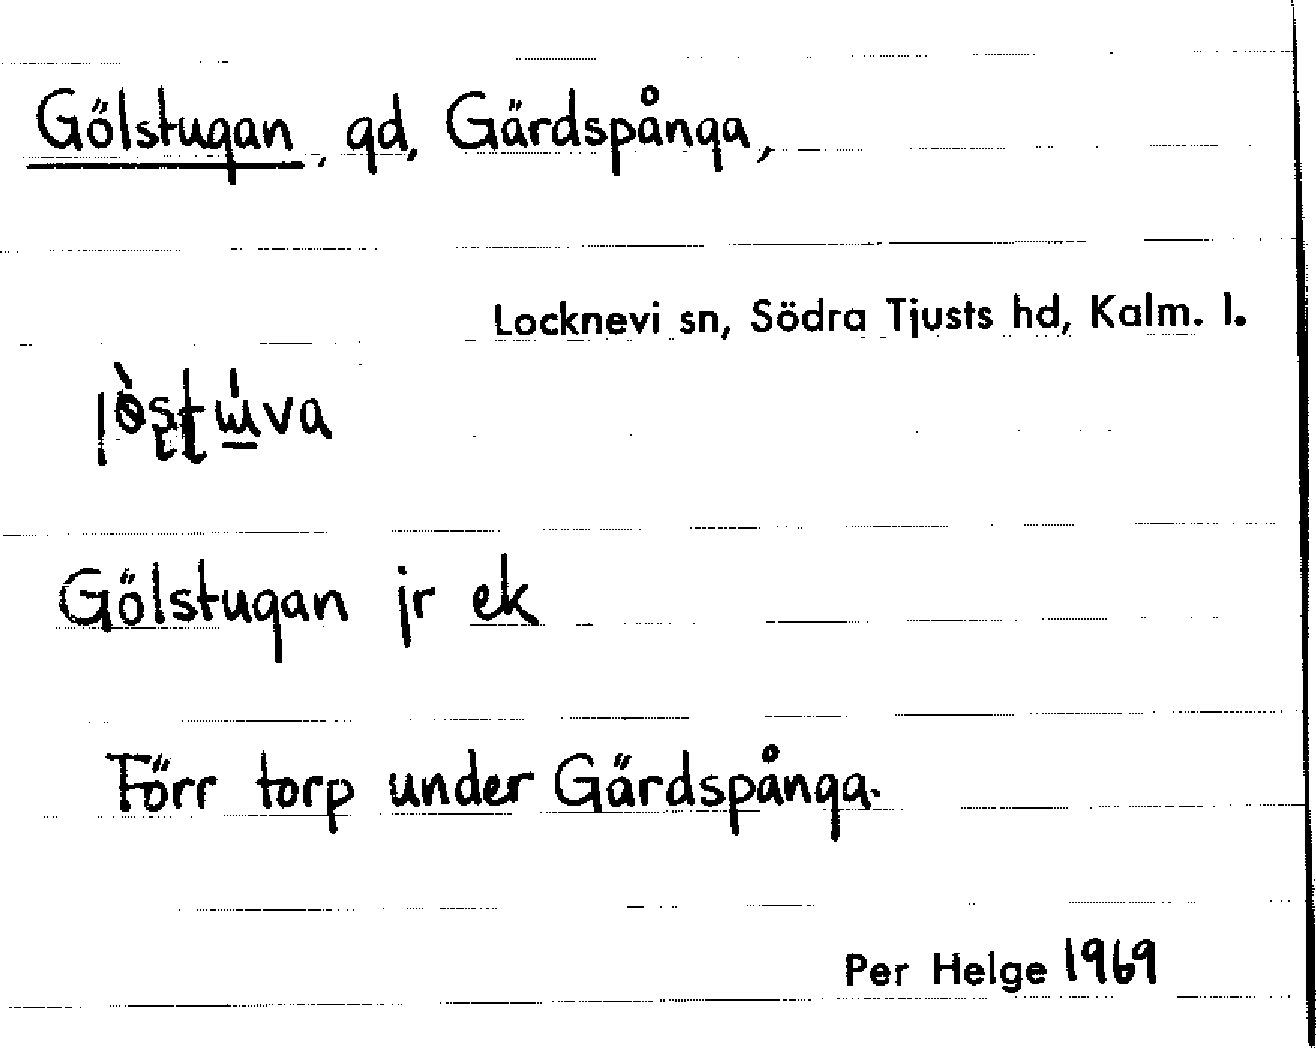 Gölstugan, gd, Gärdspånga,
Locknevi sn, Södra Tjusts hd, Kalm. l.
Gölstugan jr ek
Förr torp under Gärdspånga.
Per Helge 1969